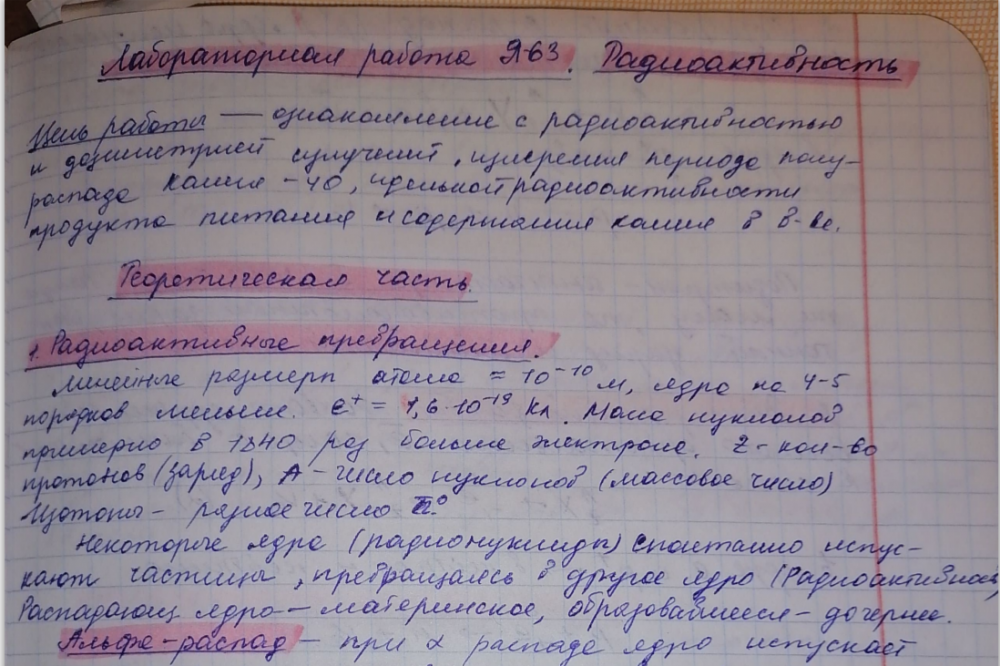 Лабораторная работа Я-63. Радиоактивность
Цель работы — ознакомление с радиоактивностью
и дозиметрией излучений, измерения периода полу-
распада калия-40, удельной радиоактивности
продукта питания и содержания калия в в-ве.
Теоретическая часть.
1. Радиоактивные превращения.
Линейные размеры атома ≈ 10⁻¹⁰ м, ядра на 4-5
порядков меньше. e⁺ = 1,6·10⁻¹⁹ Кл. Масса нуклонов
примерно в 1840 раз больше электрона. Z - кол-во
протонов (заряд), A - число нуклонов (массовое число)
Изотопы - разное число n⁰
Некоторые ядра (радионуклиды) спонтанно испус-
кают частицы, превращаясь в другое ядро (Радиоактивность
Распадающ. ядро - материнское, образовавшееся - дочернее.
Альфа-распад - при α распаде ядро испускает